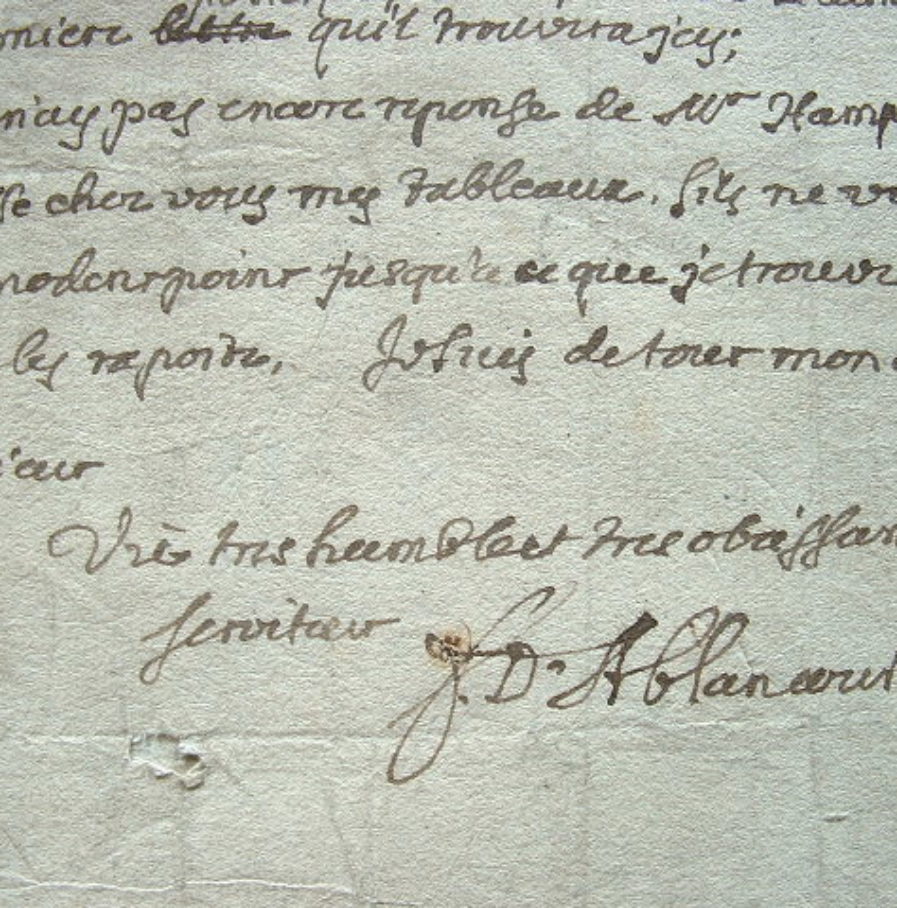 miere lettre qu'il trouvera jcy;
n'ay pas encore reponse de Mr Hamp
se chez vous mes tableaux. s'ils ne v
modent point jusqu'a ce que je trouve
les raporte, Je suis de tout mon
ieur
Vre tres humble et tres obeissan
serviteur
J. D. Ablancourt